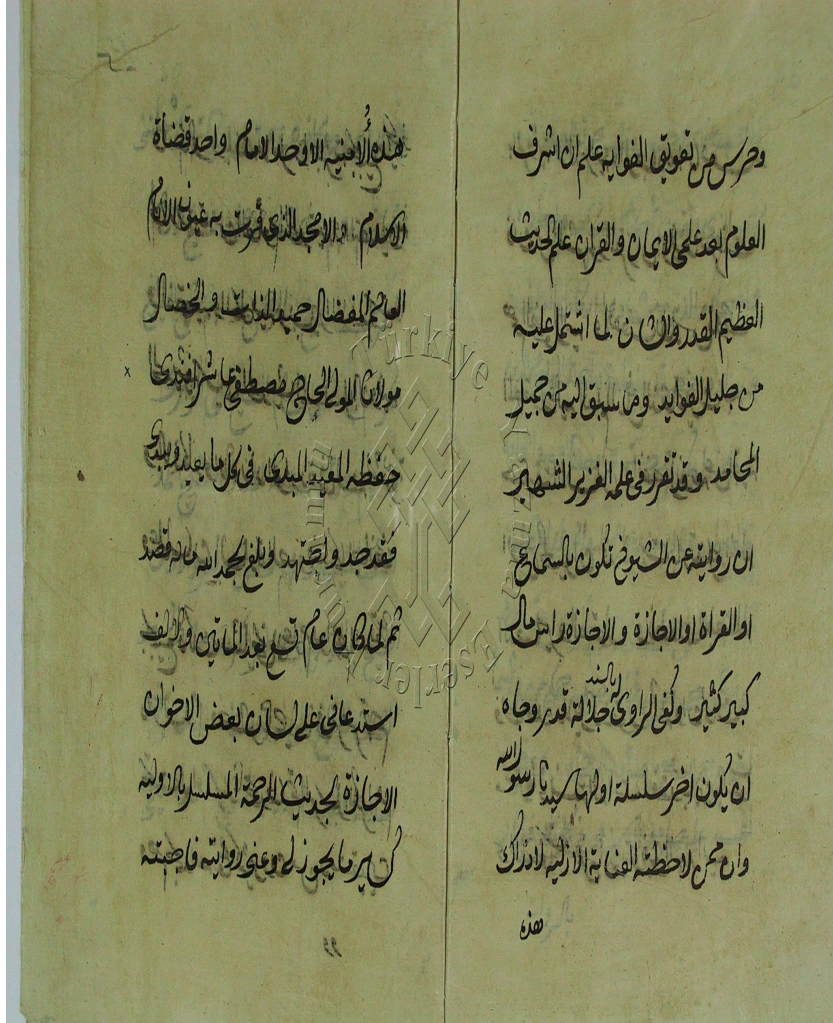 وحرس من تعويق الغوايه علم ان اشرف
العلوم بعد علمي الايمان والقران علم الحديث
العظيم القدر والشان لما اشتمل عليه
من جليل الفوايد وما سبق اليه من جميل
المحامد وقد تقرر في علمه الغزير الشهير
ان روايته عن الشيوخ تكون بالسماع
او القراة او الاجازة والاجازة راس مال
كبير كثير وكفى الراوي بالسند جلالة قدر وجاه
ان يكون اخر سلسلة اولها سيدنا رسول الله
وان ممن لاحظته العناية الازلية لادراك
هذه
هذه الامنيه الاوحد الامام واحد قضاة
الاسلام والامجد الذي قرت به عيون الانام
العالم المفضال جميع الذات والخصال
مولانا المولى الحاج مصطفى عاشر افندي
حفظه المعيد المبدى في كل ما يعيد ويبدى
فقد جد واجتهد وبلغ بحمد الله ما قصد
ثم لما كان عام تسع بعد الماتين والالف
استدعاني على لسان بعض الاخوان
الاجازة بحديث الرحمة المسلسل بالاولية
كغير ما يجوز لي وعني روايته فاجبته
Türkiye Yazma Eserler Kurumu